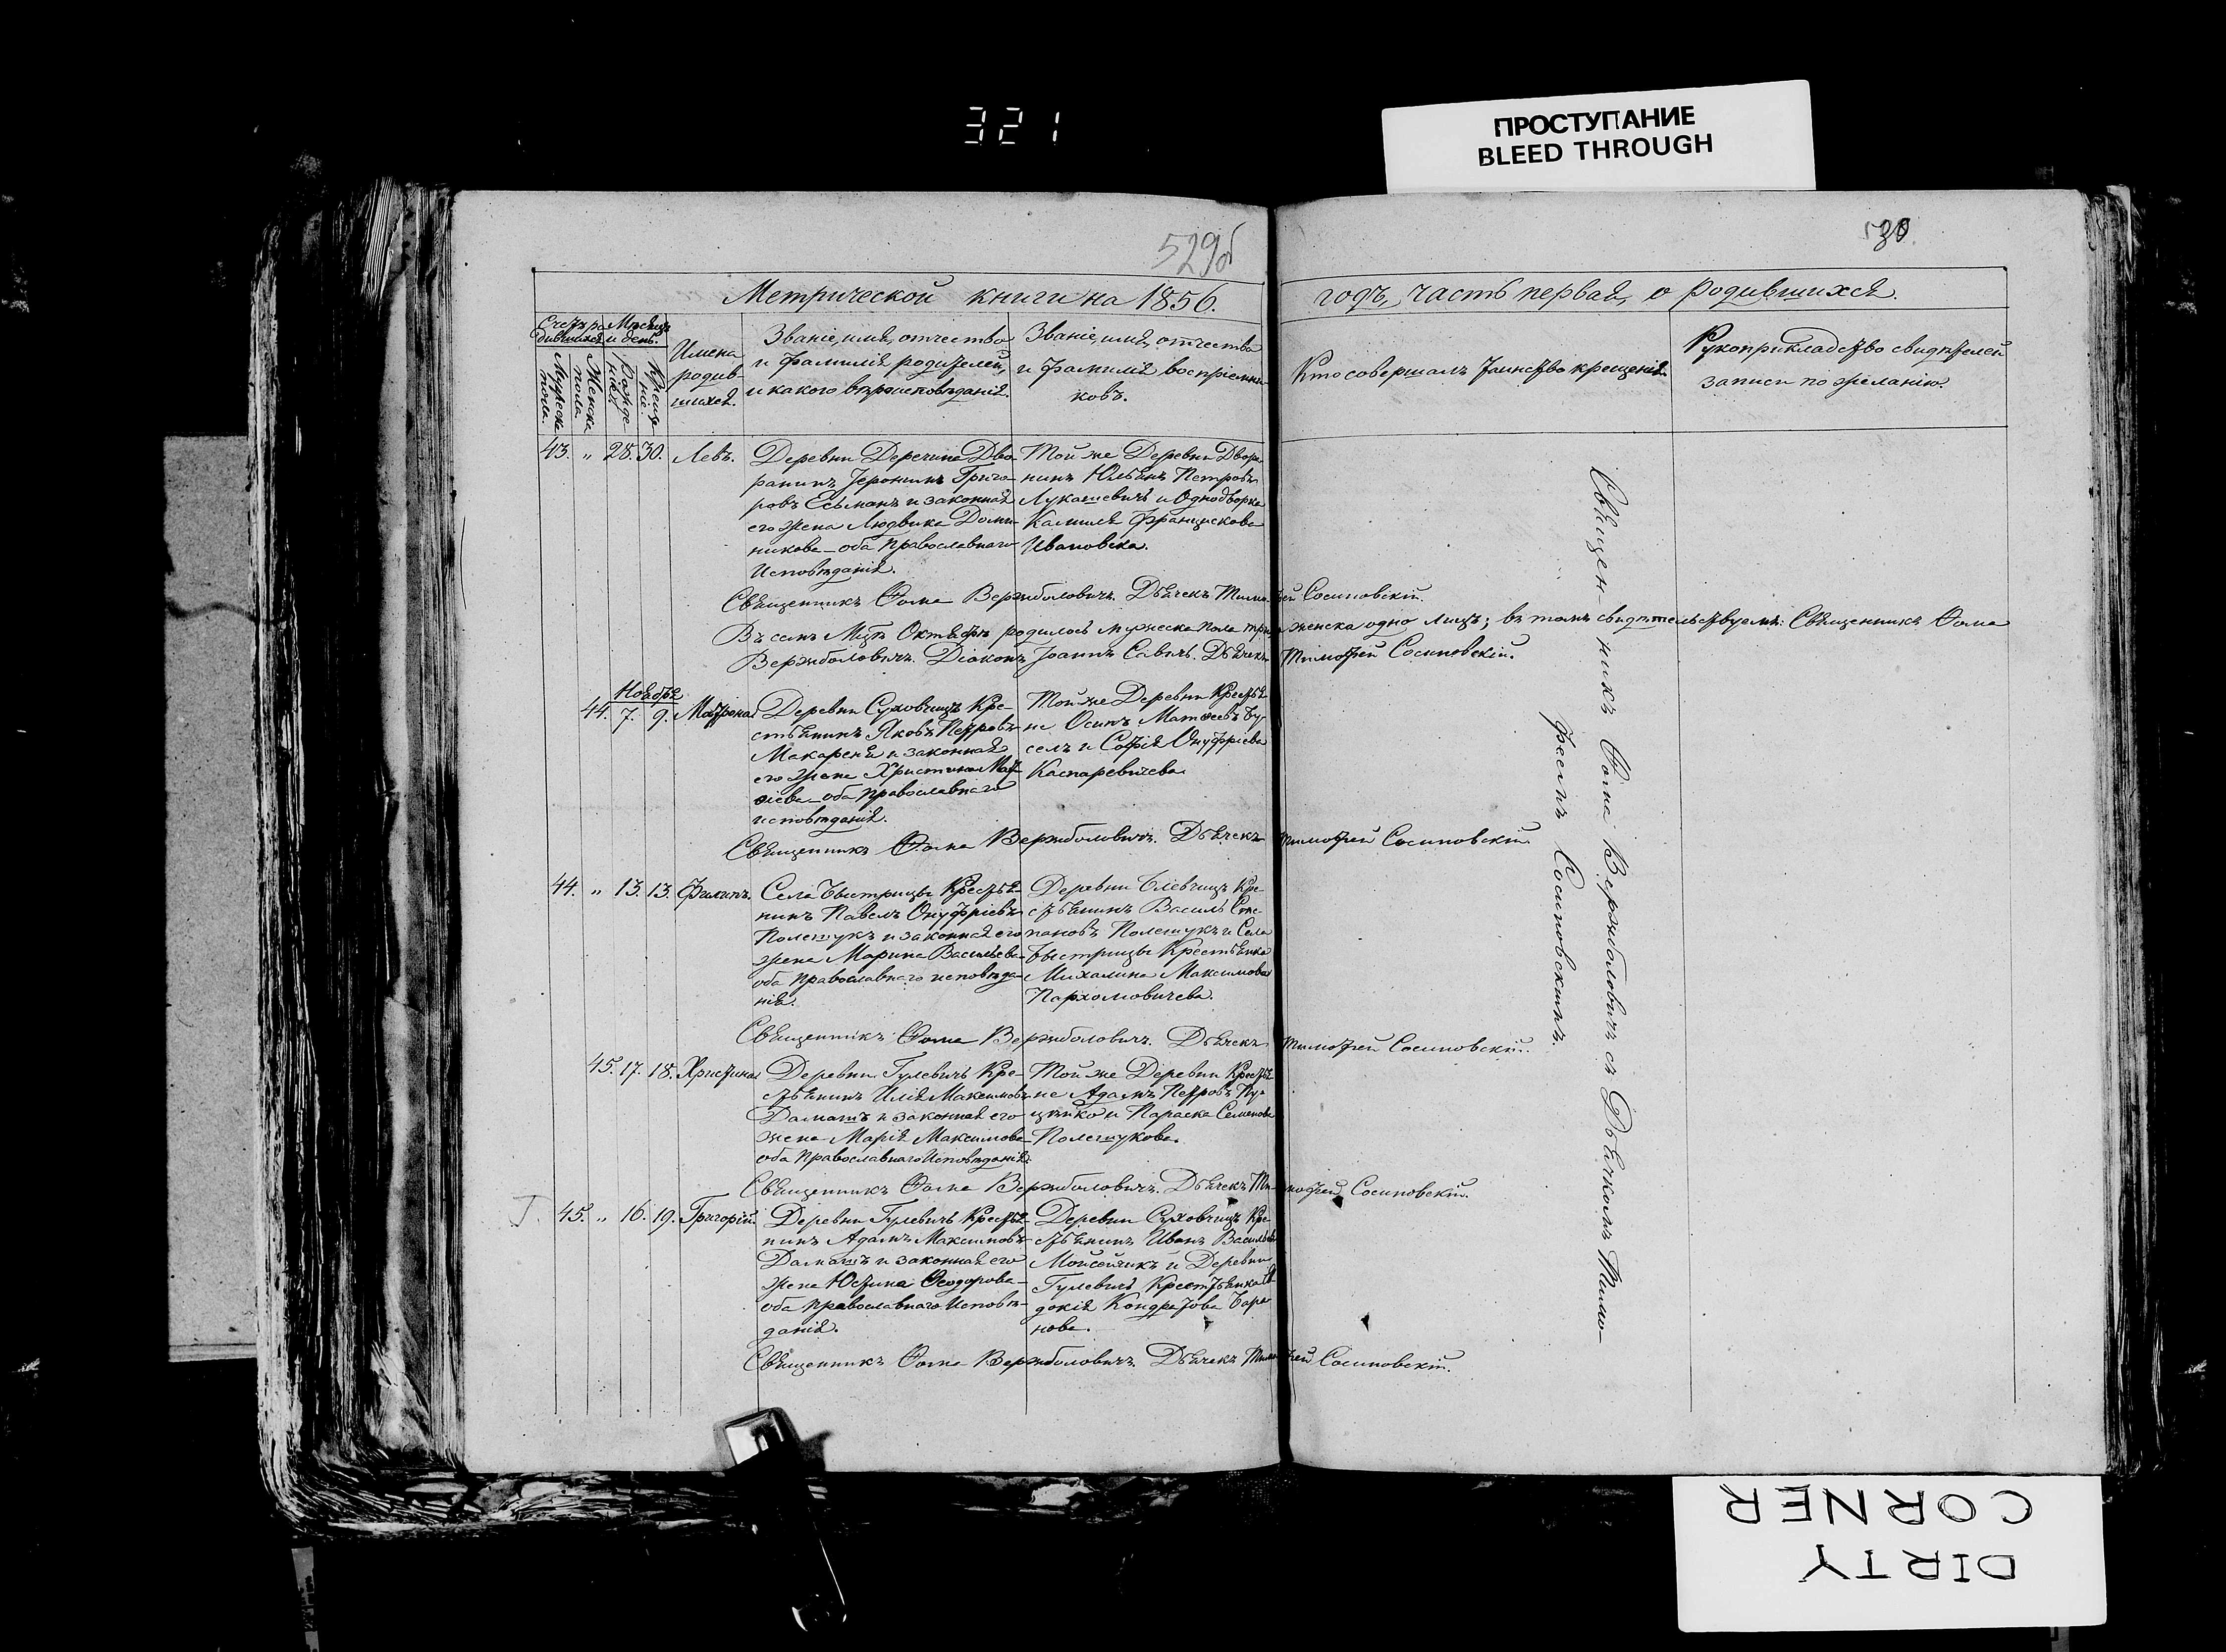 321
ПРОСТУПАНИЕ
BLEED THROUGH
529б
530
Метрической книги на 1856.
годъ, часть первая, о родившихся.
Счетъ родившихся
Мѣсяцъ и день.
Мужеска пола.
Женска пола.
Рожденія
Крещенія
Имена родившихся.
Званіе, имя, отчество
и фамилія родителей,
и какого вѣроисповѣданія.
Званіе, имя, отчество
и фамилія воспріемни-
ковъ.
Кто совершалъ таинство крещенія.
Рукоприкладство свидѣтелей
записи по желанію.
43. „ 28. 30. Левъ.
Деревни Деречина Дво-
рянинъ Іеронимъ Григо-
ровъ Есьманъ и законная
его жена Людвика Доми-
никова – оба православнаго
Исповѣданія.
Той же Деревни Дворя-
нинъ Юльянъ Петровъ
Лукашевичъ и Однодворка
Камиля Францискова
Ивановска.
Священникъ Ѳома Вержболовичъ. Дьячекъ Тимофей Сосиновскій.
Въ семъ Мцѣ Октябрѣ родилось мужеска пола три женска одно лицъ; въ томъ свидѣтельствуемъ: Священникъ Ѳома
Вержболовичъ. Діаконъ Іоаннъ Савичъ. Дьячекъ Тимофей Сосиновскій.
Ноября
44. 7. 9. Матрона
Деревни Суховчицъ Кре-
стьянинъ Яковъ Петровъ
Макареня и законная
его жена Христина Мат-
ѳіева – оба православнаго
исповѣданія.
Той же Деревни Крестья-
не Осипъ Матѳеевъ Бу-
селъ и Софія Онуфріева
Каспаревичева.
Священникъ Ѳома Вержболовичъ. Дьячекъ Тимофей Сосиновскій.
44. „ 13. 13. Филипъ.
Села Быстрицы Крестья-
нинъ Павелъ Онуфріевъ
Полешукъ и законная его
жена Марина Васильева
оба православнаго исповѣда-
нія.
Деревни Блевчицъ Кре-
стьянинъ Василь Сте-
пановъ Полешукъ и Села
Быстрицы Крестьянка
Михалина Максимова
Пархомовичева.
Священникъ Ѳома Вержболовичъ. Дьячекъ Тимофей Сосиновскій.
45. 17. 18. Христина
Деревни Гулевичъ Кре-
стьянинъ Илія Максимовъ
Даматъ и законная его
жена Марія Максимова
оба православнаго Исповѣданія.
Той же Деревни Крестья-
не Адамъ Петровъ
и Параска Семенова
Полешукова.
Священникъ Ѳома Вержболовичъ. Дьячекъ Тимофей Сосиновскій.
45. „ 16. 19. Григорій
Деревни Гулевичъ Крестья-
нинъ Адамъ Максимовъ
Даматъ и законная его
жена Юстина Ѳеодорова –
оба православнаго Исповѣ-
данія.
Деревни Суховчицъ Кре-
стьянинъ Иванъ Васильевъ
Мойсейчикъ и Деревни
Гулевичъ Крестьянка Ев-
докія Кондратова Бара-
нова.
Священникъ Ѳома Вержболовичъ. Дьячекъ Тимофей Сосиновскій.
Священникъ Ѳома Вержболовичъ съ Дьячкомъ Тимо-
феемъ Сосиновскимъ.
DIRTY
CORNER